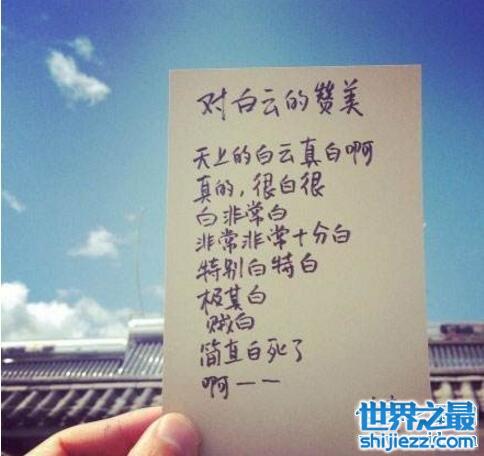 对白云的赞美
天上的白云真白啊
真的，很白很
白非常白
非常非常十分白
特别白特白
极其白
贼白
简直白死了
啊——
世界之最
shijiezz.com